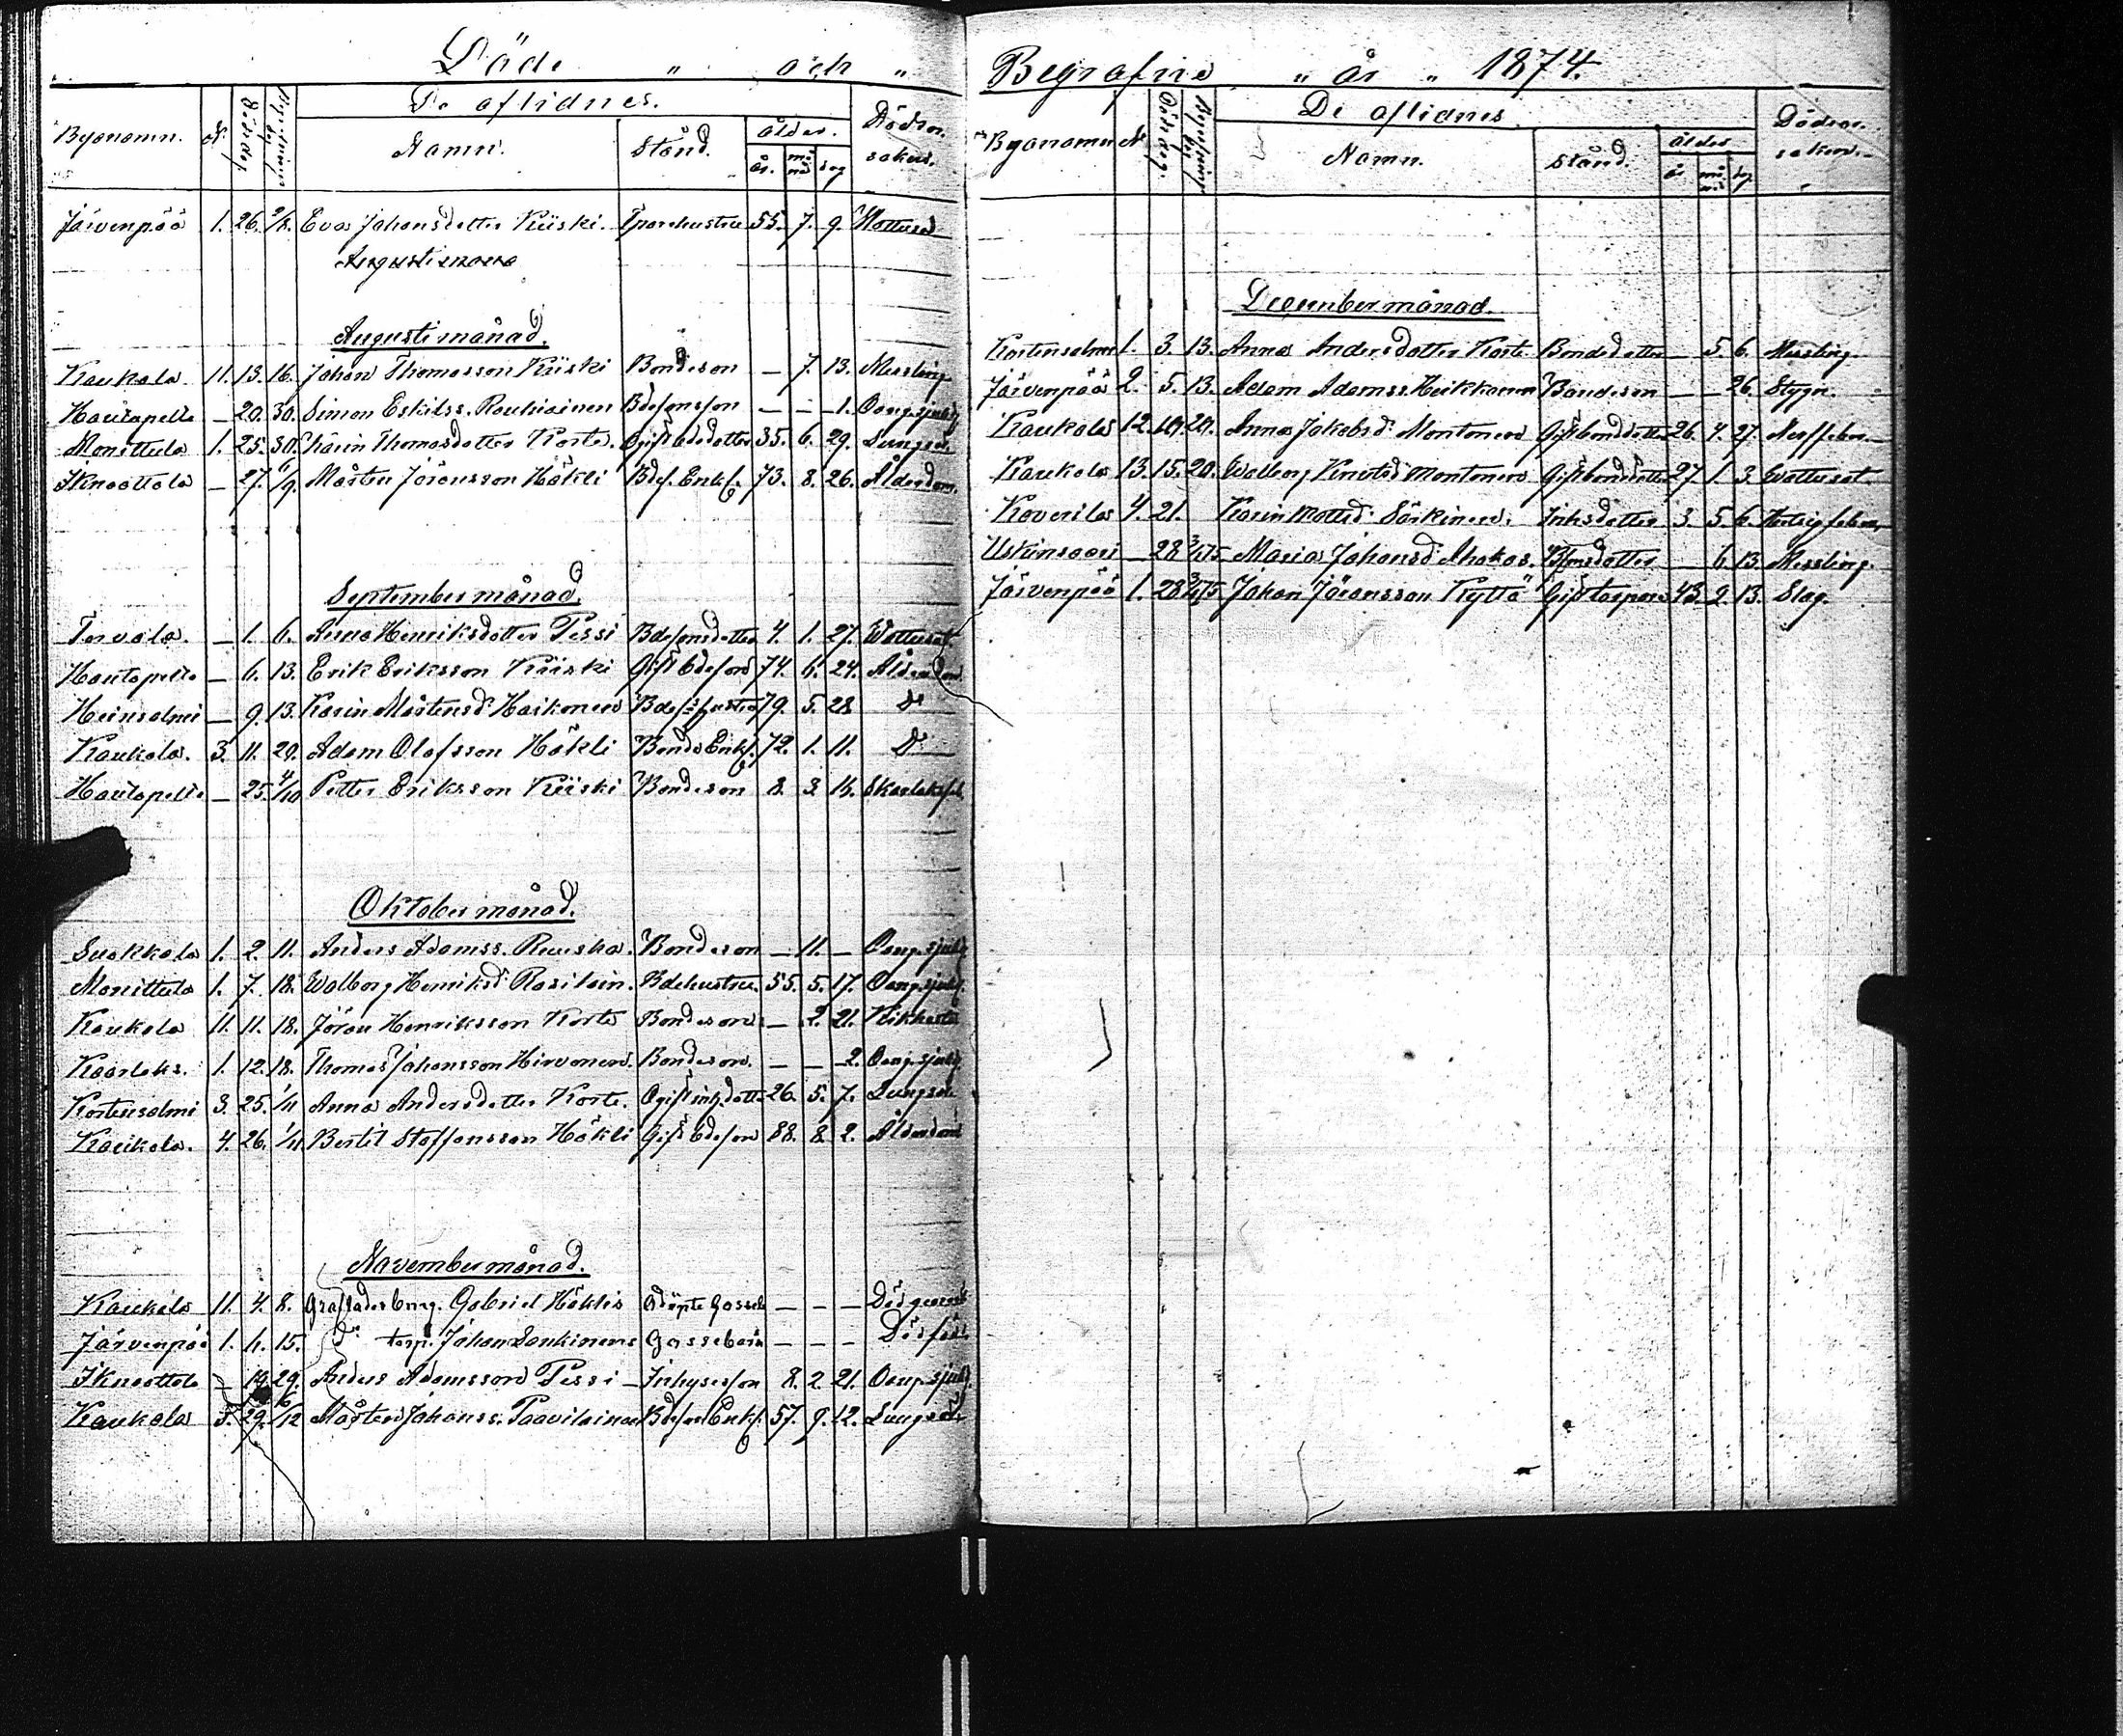 Döde " och "
De aflidnes.
Byanamn. N. Död.dag Begrafnings dag Namn. Stånd. ålder. år. må nad dag Dödsor. saken.
Järvenpää 1. 26. 2/8. Eva Johansdotter Kiiski. Tparehustru 55. 7. 9. Wattusot
Augustimånad.
Kaukola 11. 13. 16. Johan Thomasson Kiiski Bondeson — 7. 13. Messling
Hautapelto — 20. 30. Simon Eskilss. Raukiainen Bdesonsson — — 1. Oang.sjukd.
Monittula 1. 25. 30. Karin Thomasdotter Korte. Ogift bdedotter 35. 6. 29. Lungsot.
Iknoottola — 27. 6/9. Mårten Jöransson Häkli Bdes. Enkl. 73. 8. 26. Ålderdom.
September månad.
Tervola. — 1. 6. Anna Henriksdotter Pessi Bdesonsdotter 4. 1. 27. Wattusot
Hautapelto — 6. 13. Erik Eriksson Kiiski Gift bdeson 74. 6. 24. Ålderdom
Heinsalmi — 9. 13. Karin Mårtensd. Haikonen Bdes. hustru 79. 5. 28. D:o
Kaukola. 3. 11. 20. Adam Olofsson Häkli Bonde Enkl. 72. 1. 11. D:o
Hautapelto — 25. 4/10 Petter Eriksson Kiiski Bondeson 8. 3. 14. Skarlaksfeb.
Oktober månad.
Suokkola 1. 2. 11. Anders Adamss. Ruuska. Bondeson — 11. — Oang.sjukd.
Monittula 1. 7. 18. Walborg Henriksd. Rasilain. Bdehustru. 55. 5. 17. Oang.sjukd.
Kaukola 11. 11. 18. Jöran Henriksson Korte Bondeson — 2. 21. Kikhosta
Kaarlaks. 1. 12. 18. Thomas Johansson Hirvonen. Bondeson. — — 2. Oang.sjukd.
Kortensalmi 3. 25. 1/11 Anna Andersdotter Korte. Ogift inh.dotter 26. 5. 7. Lungsot
Kaukola. 4. 26. 1/11. Bertil Staffansson Häkli Gift bdeson 88. 8. 2. Ålderdom
November månad.
Kaukola 11. 4. 8. Gabriel Häklis odöpte Gosseb. — — — Dödgeworden
Järvenpää 1. 11. 15. D:o torp. Johan Lankinens Gossebarn — — — Dödfödt
Iknoottola — 19. 29. Anders Adamsson Pessi Inhyseson 8. 2. 21. Oang.sjukd.
Kaukola 5. 29. 6/12 Mårten Johanss. Paavilainen Bdeson Enkl. 57. 9. 12. Lungsot
Begrafne " år " 1874.
De aflidnes
Byanamn N. Död.dag. Begrafnings dag Namn. Stånd. ålder år må nad dag Dödsor. saken.
December månad.
Kortensalmi 1. 3. 13. Anna Andersdotter Korte Bondedotter — 5. 6. Messling.
Järvenpää 2. 5. 13. Adam Adamss. Heikkonen Bondeson — — 26. Stygn.
Kaukola 12. 10. 20. Anna Jakobsd. Montonen Gift bondedotter 26. 4. 27. Nerffeber.
Kaukola 13. 15. 20. Walborg Knutsd. Montonen Gift bondedotter 27. 1. 3. Wattusot.
Koverila 4. 21. Karin Mattsd. Särkinen. Inhsdotter 3. 5. 6.
Uskinsaari — 28. 3/1 75. Maria Johansd. Ahokas. Bsonsdotter — 6. 13. Messling.
Järvenpää 1. 28. 3/1 75. Johan Jöransson Kyttä Gift torpare 43. 2. 13. Slag.